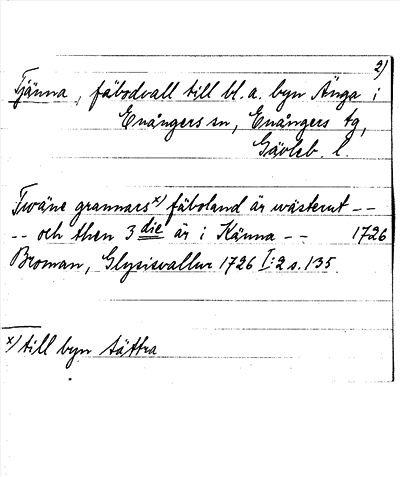 2)
Tjänna, fäbodvall till bl. a. byn Änga i
Enångers sn, Enångers tg,
Gävleb. l.
Twäne grannars x) fäboland är wästerut --
-- och then 3 die är i Känna -- 1726
Broman, Glysisvallur 1726 I:2 s. 135.
x) till byn Sättra